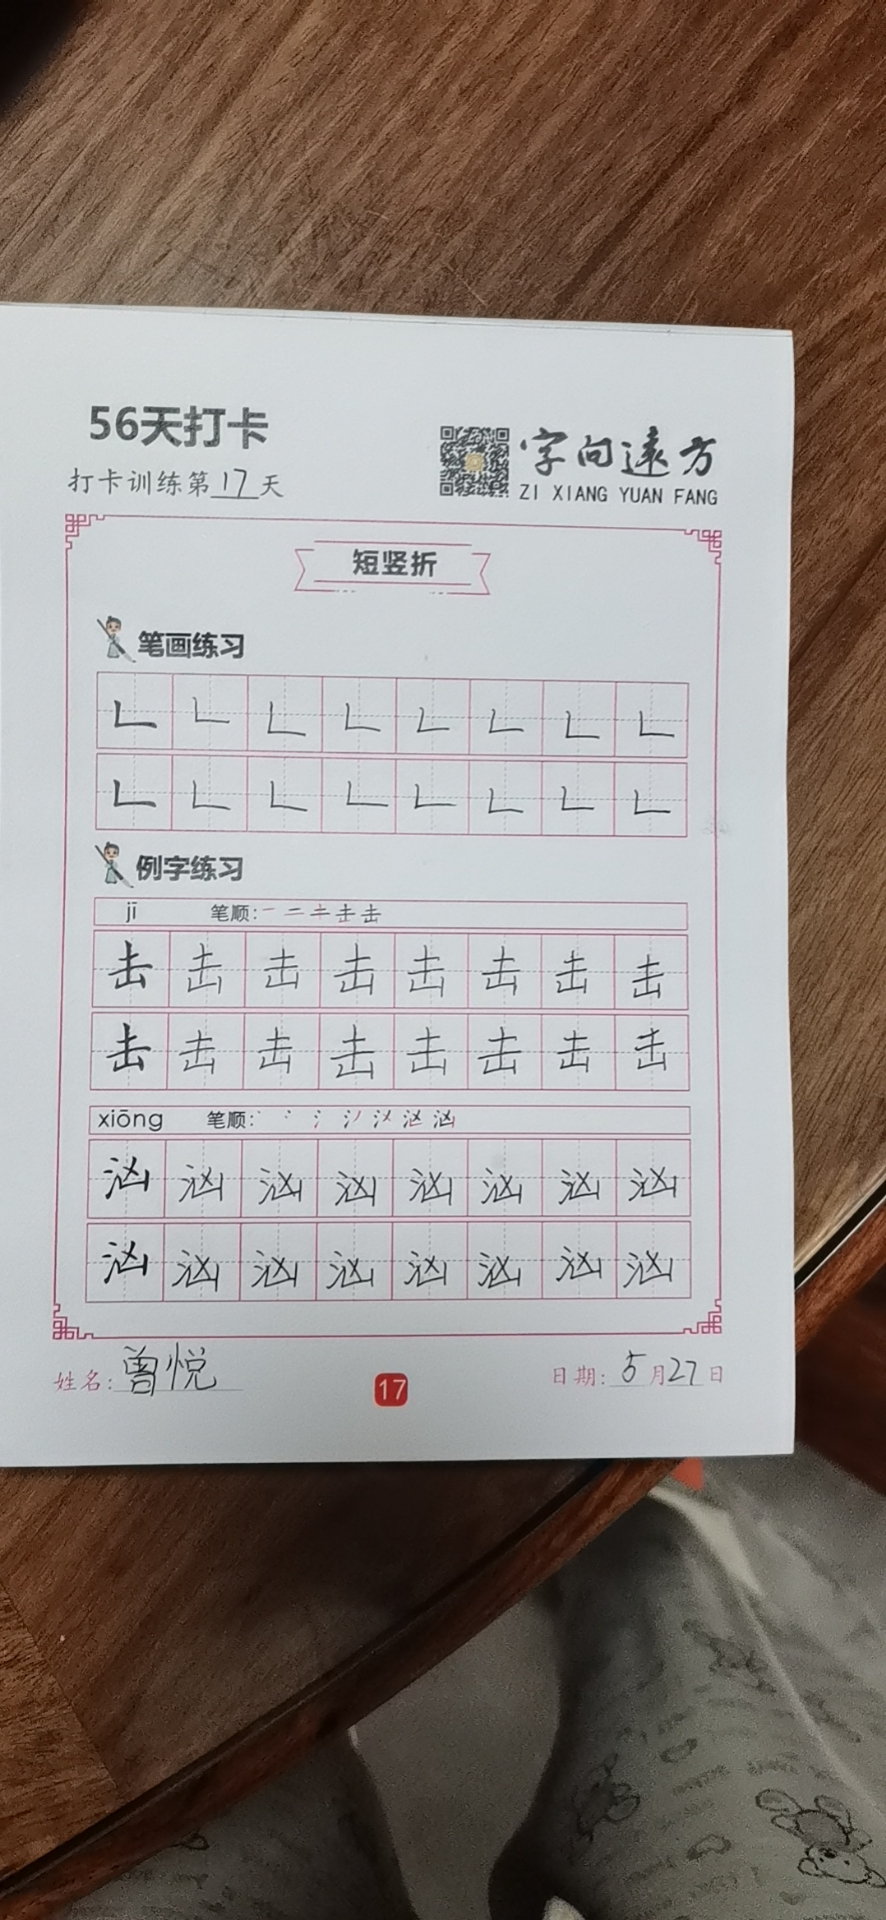 56天打卡
打卡训练第17天
字向远方
ZI XIANG YUAN FANG
短竖折
笔画练习
𠃊 𠃊 𠃊 𠃊 𠃊 𠃊 𠃊 𠃊
𠃊 𠃊 𠃊 𠃊 𠃊 𠃊 𠃊 𠃊
例字练习
jī 笔顺:
击 击 击 击 击 击 击 击
击 击 击 击 击 击 击 击
xiōng 笔顺:
汹 汹 汹 汹 汹 汹 汹 汹
汹 汹 汹 汹 汹 汹 汹 汹
姓名:曾悦
17
日期:5月27日